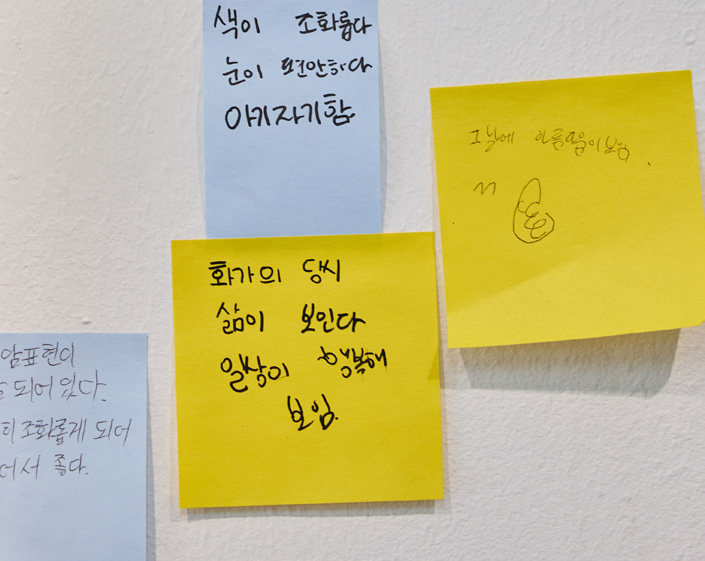 색이 조화롭다
눈이 편안하다
아기자기함.
그날에 아름다움이 보임.
화가의 당시
삶이 보인다
일상이 행복해
보임.
암표현이
되어 있다.
조화롭게 되어
어서 좋다.